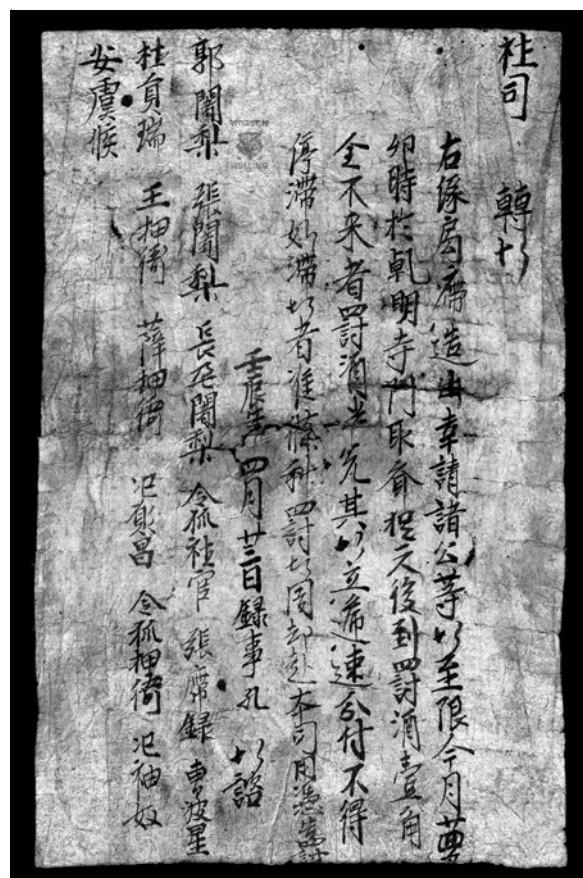 社司　轉帖
右緣局席造出幸請諸公等帖至限今月
卯時於乹明寺門取齊捉二人後到罸酒壹角
全不來者罸酒半瓮其帖立遞速分付不得
停滯如滯帖者准條科罸帖周却赴本司用憑告罸
壬辰年四月廿三日録事孔　帖諮
郭闍梨　張闍梨　長　闍梨　令狐社官　張席録　曹波星
杜員瑞　王押衙　薛押衙　氾願昌　令狐押衙　氾神奴
安虞候
BRITISH
MUSEUM